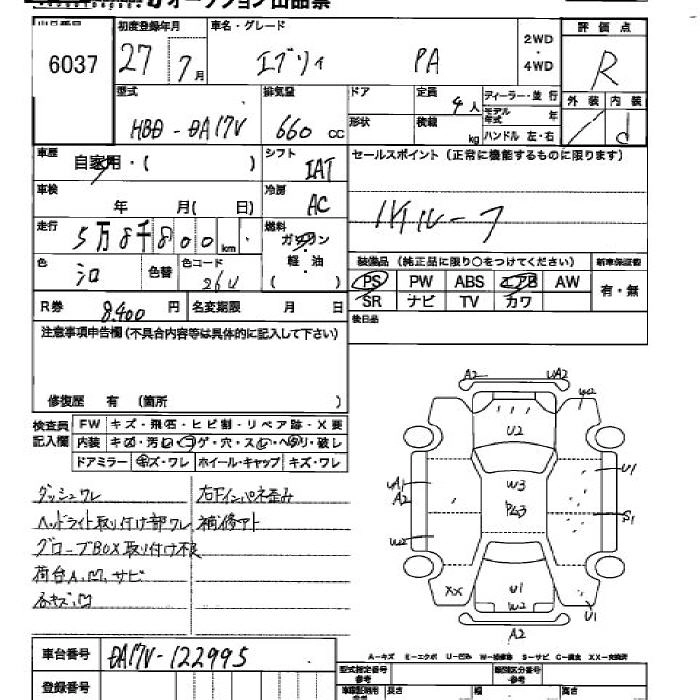 オークション出品票
出品番号 6037
初度登録年月 27年 7月
車名・グレード エブリィ PA
2WD・4WD
評価点 R
型式 HBD-DA17V
排気量 660 cc
ドア
形状
定員 4人
積載 kg
ディーラー・並行
モデル年式 年
ハンドル 左・右
外装
内装 d
車歴 自家用・( )
シフト IAT
セールスポイント(正常に機能するものに限ります)
ハイルーフ
車検 年 月( 日)
冷房 AC
走行 5万8千800km
燃料 ガソリン・軽・油( )
色 シロ 色替
色コード 26U
装備品(純正品に限り○をつけてください)
新車保証書 有・無
PS PW ABS エアB AW
SR ナビ TV カワ
R券 8,400円
名変期限 月 日
後日品
注意事項申告欄(不具合内容等は具体的に記入して下さい)
修復歴 有(箇所 )
検査員記入欄
FW キズ・飛石・ヒビ割・リペア跡・X要
内装 キズ・汚れ・コゲ・穴・スレ・ヘタリ・破レ
ドアミラー キズ・ワレ ホイール・キャップ キズ・ワレ
ダッシュワレ
ヘッドライト取り付け部ワレ
グローブBOX取り付け不良
荷台A、凹、サビ
右下インパネ歪み
補修アト
A2 UA2
W2
U2
UA1
A2
W3
P63
U1
S1
W2
XX
U1
W2
U1
A2
A-キズ E-エクボ U-凹み W-補修跡 S-サビ C-腐食 XX-交換済
車台番号 DA17V-122995
登録番号
型式指定番号
参考
類別区分番号
参考
長さ
幅
高さ